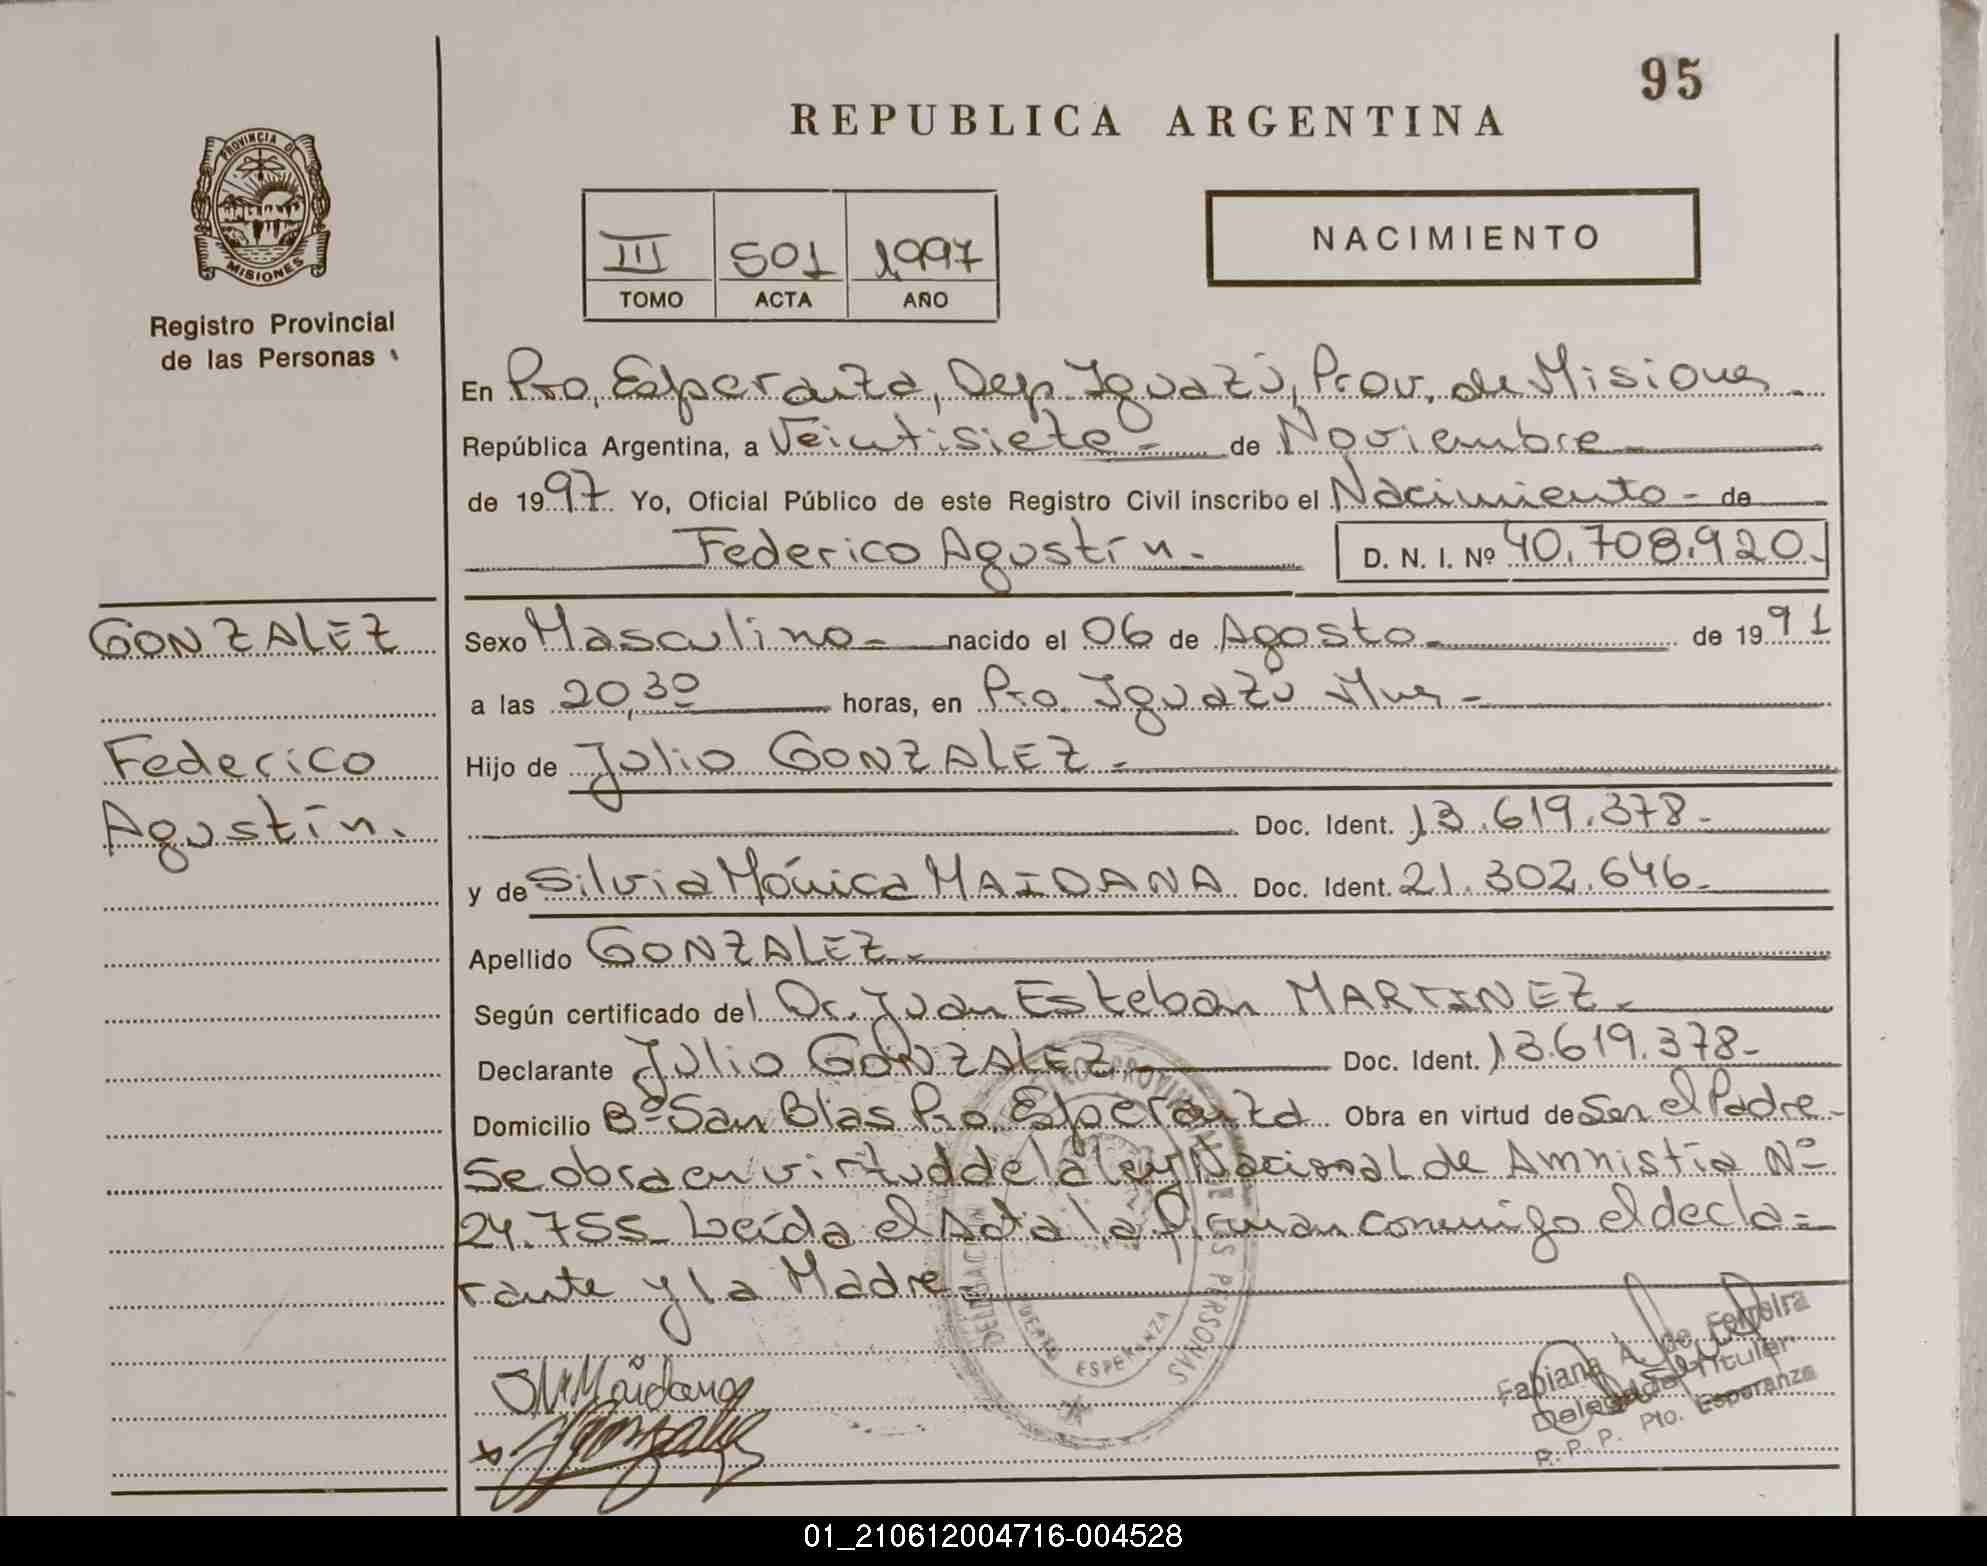 95
REPUBLICA ARGENTINA
PROVINCIA D
MISIONES
Registro Provincial
de las Personas
III 501 1997
TOMO ACTA AÑO
NACIMIENTO
En Pto, Esperanza, Dep. Iguazú, Prov. de Misiones
República Argentina, a Veintisiete - de Noviembre
de 1997 Yo, Oficial Público de este Registro Civil inscribo el Nacimiento - de
Federico Agustín. D. N. I. Nº 40.708.920.
GONZALEZ
Federico
Agustín.
Sexo Masculino - nacido el 06 de Agosto - de 1991
a las 20,30 horas, en Pto. Iguazú Mnes -
Hijo de Julio GONZALEZ -
Doc. Ident. 13.619.378.
y de Silvia Mónica MAIDANA Doc. Ident. 21.302.646.
Apellido GONZALEZ -
Según certificado del Dr. Juan Esteban MARTINEZ -
Declarante Julio GONZALEZ - Doc. Ident. 13.619.378-
Domicilio Bº San Blas Pto. Esperanza Obra en virtud de Ser el Padre -
Se obra en virtud de la ley Nacional de Amnistía Nº
24.755 Leída el Acta la firman conmigo el decla=
rante y la Madre
PERSONAS
ESPERANZA
SMMaidana
JGonzalez
Fabiana A. de Ferreira
Delegada Titular
R. P. P. Pto. Esperanza
01_210612004716-004528